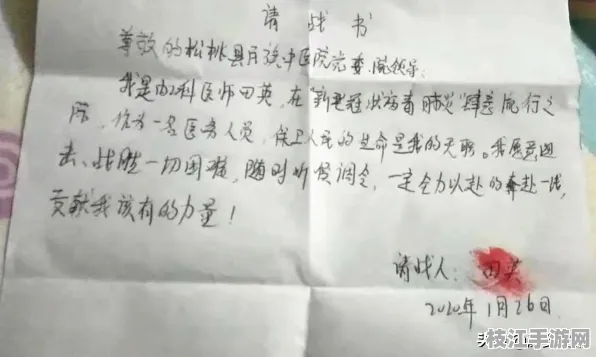 请战书
尊敬的松桃县民族中医院党委、院领导:
我是内科医师田英,在“新型冠状病毒肺炎”肆虐流行之
际,作为一名医务人员,保卫人民的生命是我的天职。我愿意迎
击、战胜一切困难,随时听候调令,一定全力以赴的奔赴一线,
贡献我该有的力量!
请战人:田英
2020年1月26日
枝江手游网